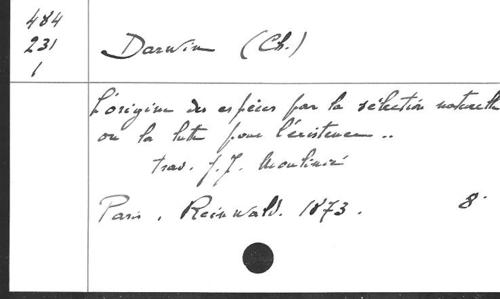 484
231
1
Darwin (Ch.)
L'origine des espèces par la sélection naturelle
ou la lutte pour l'existence ..
trad. J. J. Moulinié
Paris, Reinwald. 1873. 8°